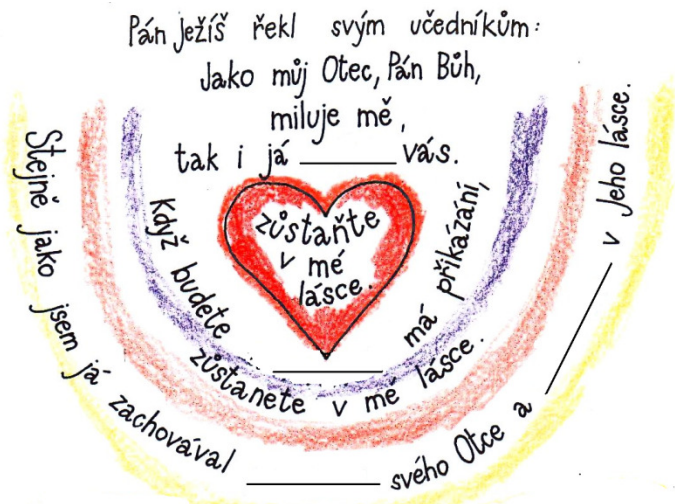 Pán Ježíš řekl svým učedníkům:
Jako můj Otec, Pán Bůh,
miluje mě,
tak i já ________ vás.
zůstaňte
v mé
lásce.
Když budete ________ má přikázání,
zůstanete v mé lásce.
Stejně jako jsem já zachovával ________ svého Otce a ________ v Jeho lásce.